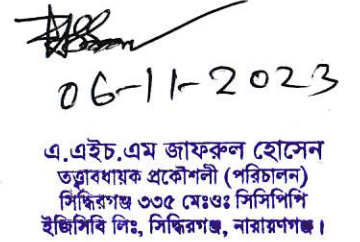 06-11-2023
এ.এইচ.এম জাফরুল হোসেন
তত্ত্বাবধায়ক প্রকৌশলী (পরিচালন)
সিদ্ধিরগঞ্জ ৩৩৫ মেঃওঃ সিসিপিপি
ইজিসিবি লিঃ, সিদ্ধিরগঞ্জ, নারায়ণগঞ্জ।